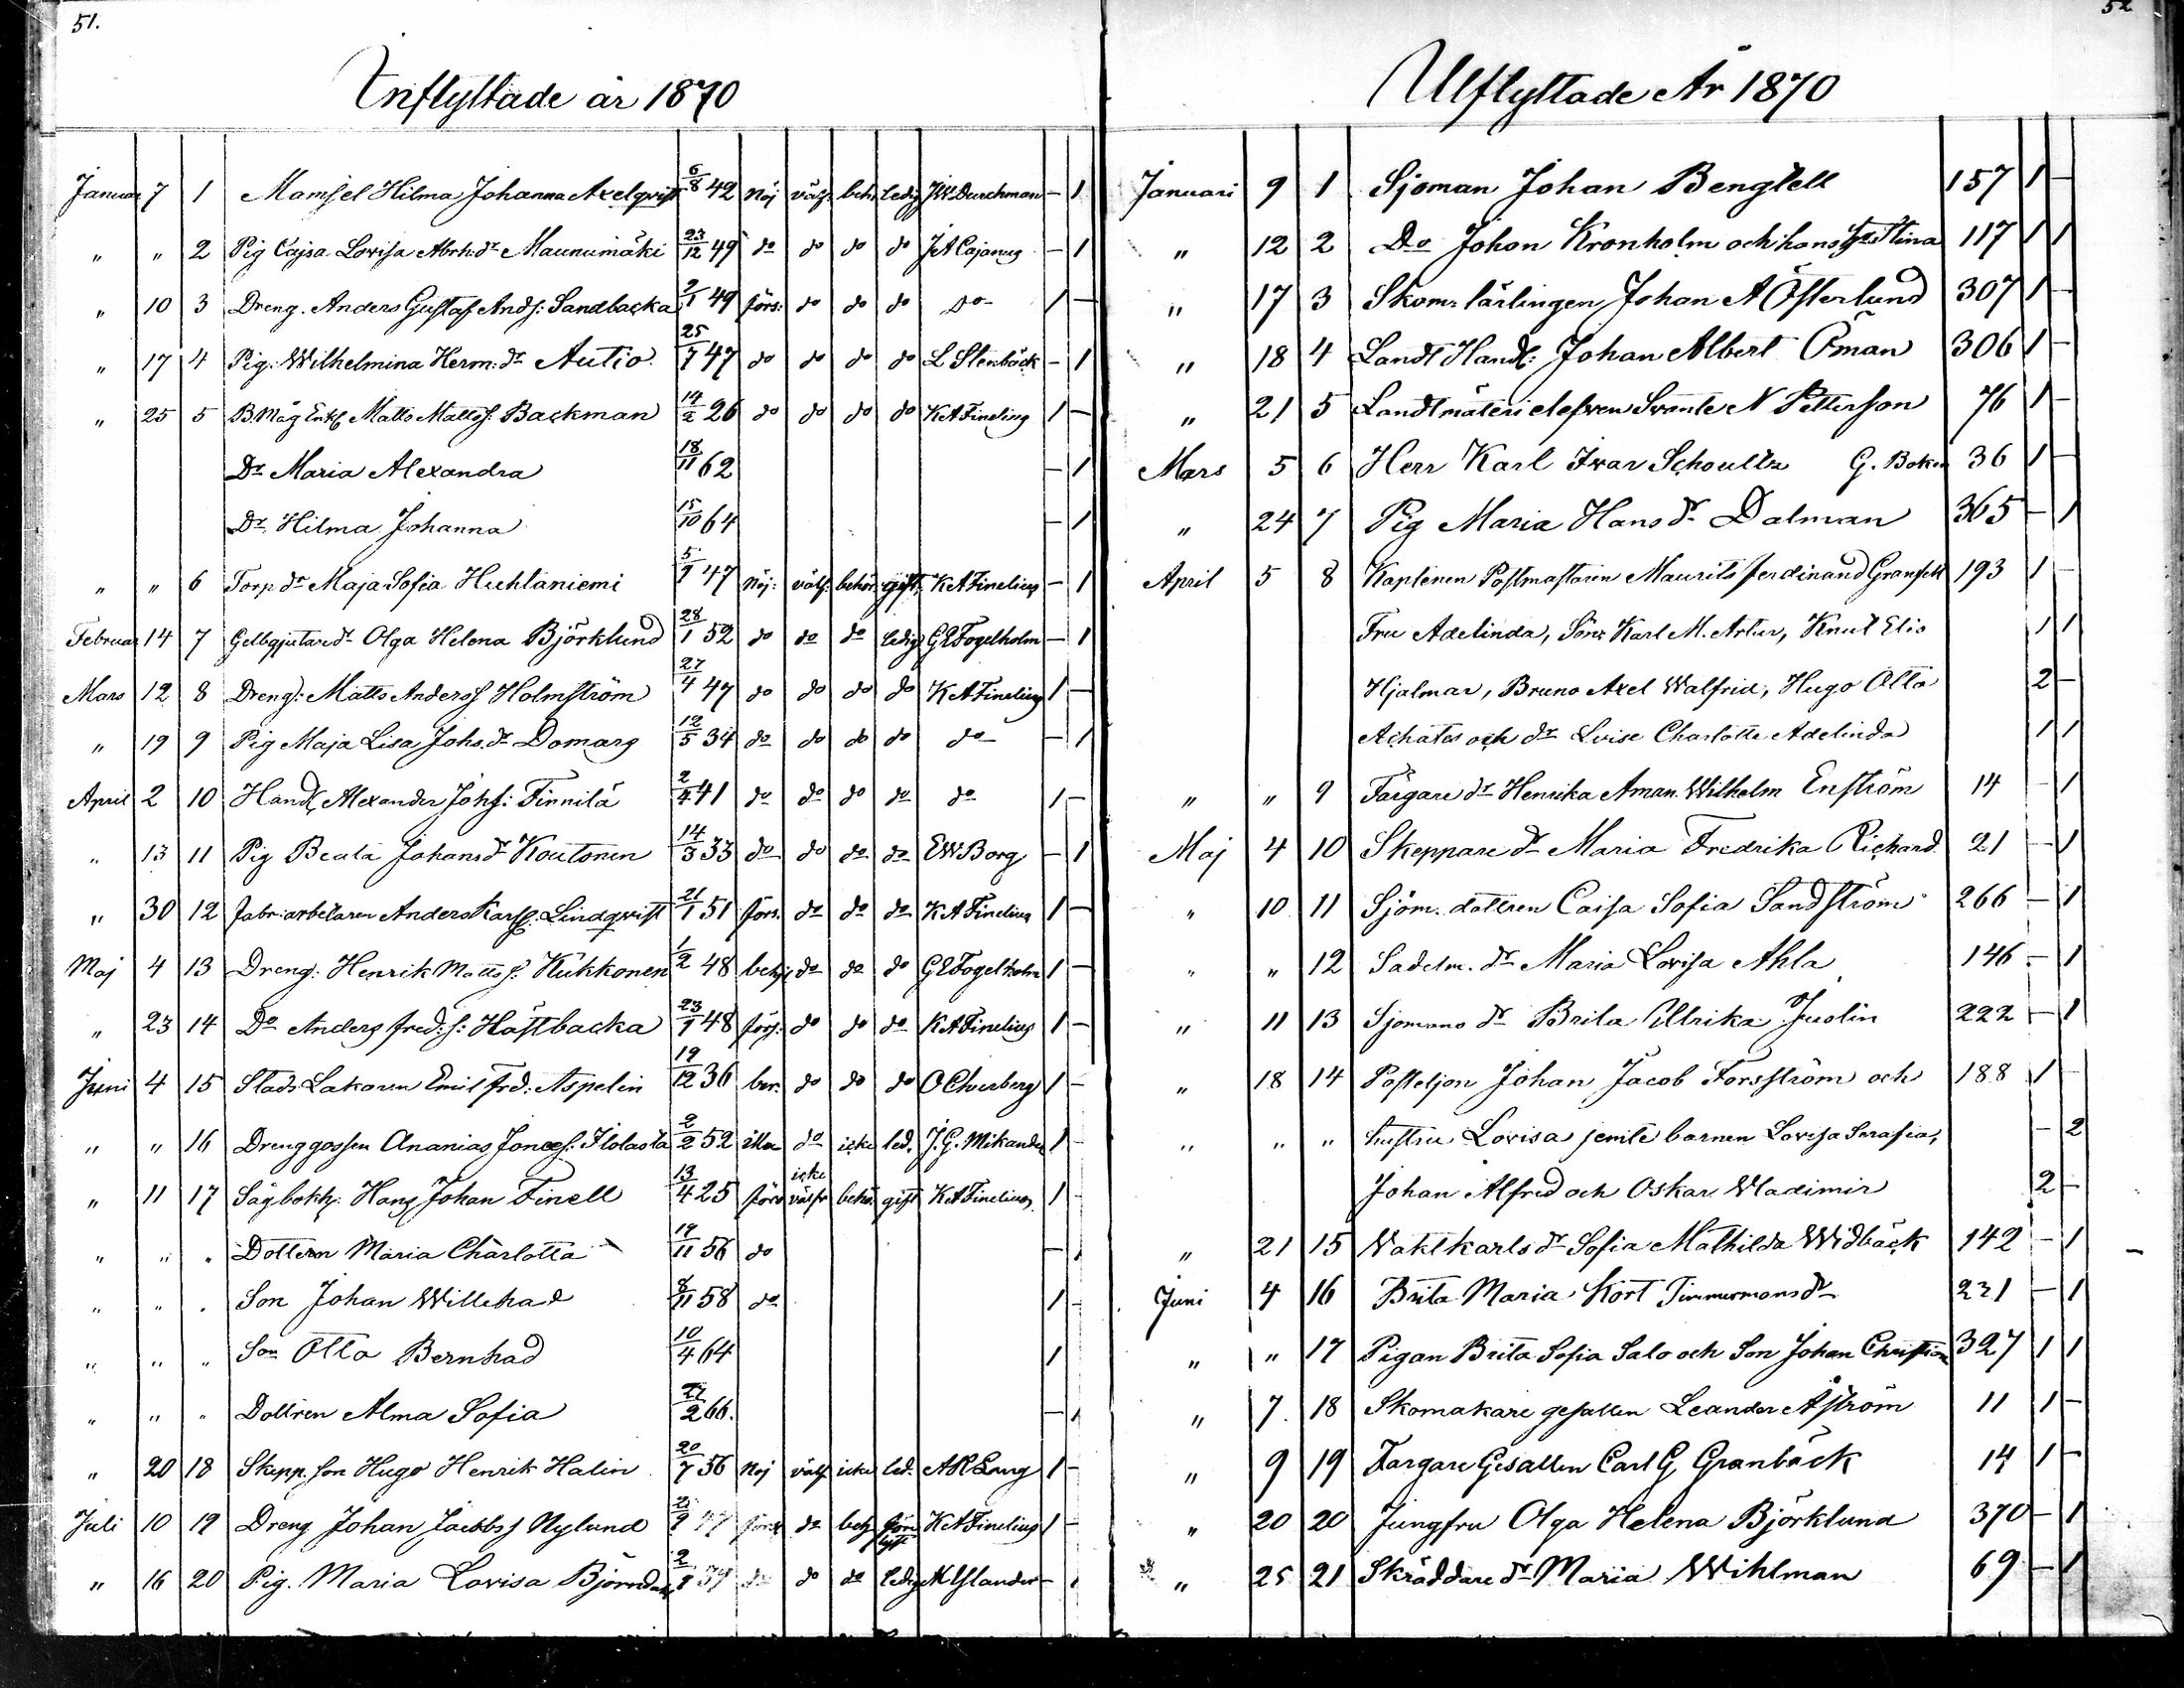 51.
Inflyttade år 1870
Januar 7 1 Mamsel Hilma Johanna Axelqvist 6/8 42 nöj välf: beh: ledig JW Durchman - 1
" " 2 Pig Cajsa Lovisa Abrh: dr Maunumäki 23/12 49 do do do do JA Cajanus - 1
" 10 3 Dreng. Anders Gustaf Ands: Sandbacka 2/1 49 förs: do do do Do 1 -
" 17 4 Pig: Wilhelmina Herm: dr Autio 25/7 47 do do do do L Stenbäck - 1
" 25 5 B. Måg Enkl Matts Matts: Backman 14/2 26 do do do do KA Finelius 1 -
Dr Maria Alexandra 18/11 62 - 1
Dr Hilma Johanna 15/10 64 - 1
" " 6 Torp dr Maja Sofia Huhtaniemi 5/7 47 nöj: välf: behör: gift KA Finelius - 1
Februar 14 7 Gelbgjutare dr Olga Helena Björklund 28/1 52 do do do ledig GE Fogelholm - 1
Mars 12 8 Dreng: Matts Anderss Holmström 27/4 47 do do do do KA Finelius 1 -
" 19 9 Pig Maja Lisa Johs. dr Domars 12/5 34 do do do do do - 1
April 2 10 Handl Alexander Johs: Finnilä 2/4 41 do do do do do 1 -
" 13 11 Pig Beata Johans dr Koutonen 14/3 33 do do do do EW Borg - 1
" 30 12 fabr: arbetaren Anders Karls: Lindqvist 21/1 51 förs. do do do KA Finelius 1 -
Maj 4 13 Dreng: Henrik Matts s. Kukkonen 1/2 48 behj do do do GE Fogelholm 1 -
" 23 14 Do Anders fred: s: Hästbacka 23/1 48 förs: do do do KA Finelius 1 -
Juni 4 15 Stads Läkaren Emil Frd: Aspelin 19/12 36 ber. do do do O Elverberg 1 -
" " 16 Drenggossen Ananias Jonas: Flolasta 2/2 52 illa do icke led. J. G. Mikander 1 -
" 11 17 Sågbokh: Hans Johan Finell 13/4 25 förs icke välfr behör gift KA Finelius 1 -
" " " Dottern Maria Charlotta 19/11 56 do - 1
" " " Son Johan Willehad 8/11 58 do 1 -
" " " Son Otto Bernhad 10/4 64 1
" " " Dottren Alma Sofia 27/2 66. - 1
" 20 18 Skepp. son Hugo Henrik Halin 20/7 56 nöj välf icke led. AR Lang 1 -
Juli 10 19 Dreng Johan Jacobs s Nylund do beh KA Finelius 1 -
" 16 20 Pig. Maria Lovisa do do do ledig 1
52
Utflyttade År 1870
Januari 9 1 Sjöman Johan Bengtell 157 1 -
" 12 2 Do Johan Kronholm och hans hstr Stina 117 1 1
" 17 3 Skom: lärlingen Johan A Österlund 307 1 -
" 18 4 Landt Handl: Johan Albert Öman 306 1 -
" 21 5 Landtmäteri elefven Svante N Petterson 76 1 -
Mars 5 6 Herr Karl Ivar Schoultz G. Boken 36 1 -
" 24 7 Pig Maria Hans dr Dalman 365 - 1
April 5 8 Kaptenen Postmästaren Maurits Ferdinand Granfelt 193 1 -
Fru Adelinda, Söner Karl M. Artur, Knut Elis 1 1
Hjalmar, Bruno Axel Walfrid, Hugo Otto 2 -
Achates och dr Lvise Charlotte Adelinda 1 1
" " 9 Färgare dr Henrika Aman. Wilhelm Enström 14 - 1
Maj 4 10 Skeppare dr Maria Fredrika Richard 21 - 1
" 10 11 Sjöm. dottren Caisa Sofia Sandström 266 - 1
" " 12 Sadelm. dr Maria Lovisa Ahla 146 - 1
" 11 13 Sjömans dr Brita Ulrika Juolin 222 - 1
" 18 14 Posteljon Johan Jacob Forsström och 188 1 -
" " " hustru Lovisa jemte barnen Lovisa Serafia, - 2
Johan Alfred och Oskar Wladimir 2 -
" 21 15 Vaktkarls dr Sofia Mathilda Widbäck 142 - 1
Juni 4 16 Brita Maria Kort Timmermans dr 221 - 1
" " 17 Pigan Brita Sofia Salo och Son Johan Christian 327 1 1
" 7. 18 Skomakare gesällen Leander Åström 11 1 -
" 9 19 Färgare Gesällen Carl G Granbäck 14 1 -
" 20 20 Jungfru Olga Helena Björklund 370 - 1
" 25 21 Skräddare dr Maria Wihlman 69 - 1